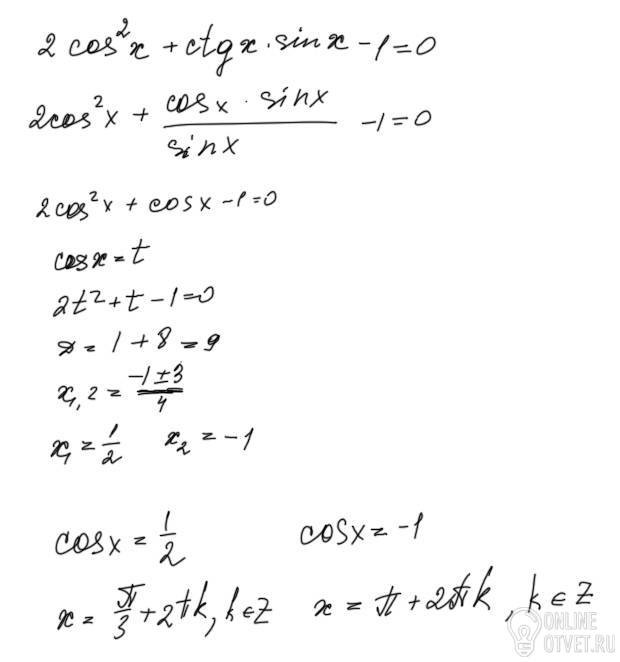 2 cos²x + ctgx · sinx − 1 = 0
2cos²x + (cosx · sinx)/(sinx) − 1 = 0
2cos²x + cosx − 1 = 0
cosx = t
2t² + t − 1 = 0
D = 1 + 8 = 9
x₁,₂ = (−1 ± 3)/4
x₁ = 1/2 x₂ = −1
cosx = 1/2 cosx = −1
x = π/3 + 2πk, k ∈ Z x = π + 2πk, k ∈ Z
ONLINE
OTVET.RU